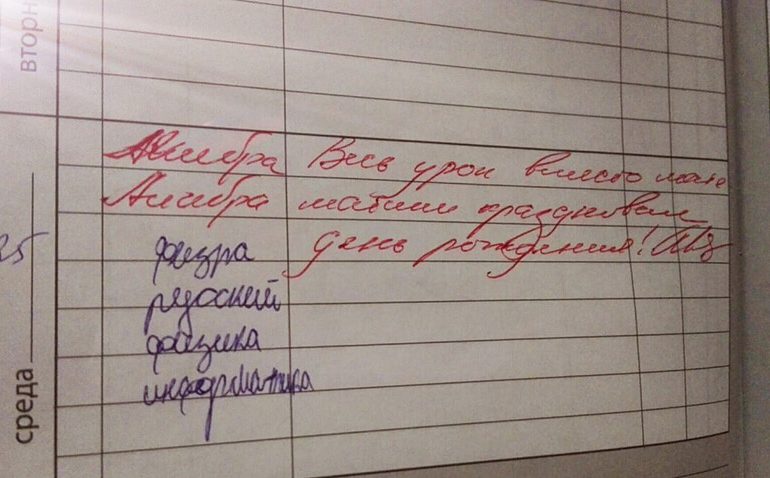 вторн
Алгебра Весь урок вместо мате
Алгебра матики праздновал
день рождения!
физра
русский
физика
информатика
25
среда